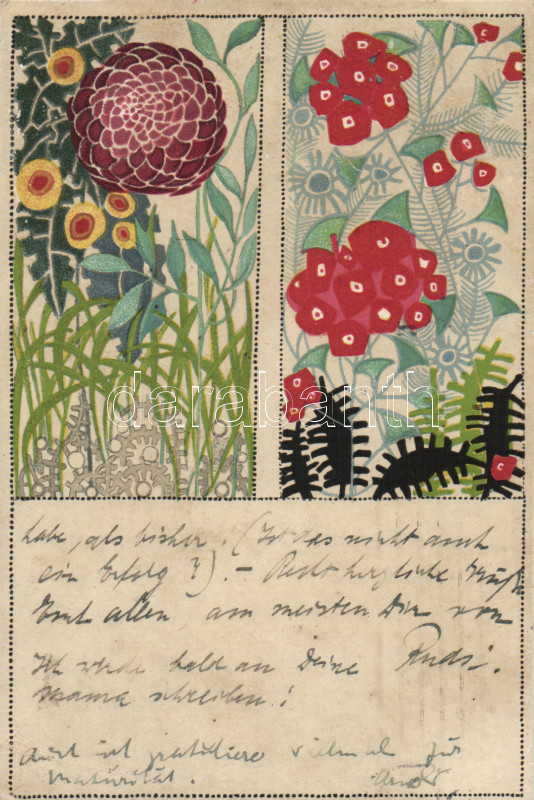 darabanth
habe, als bisher. (Ist das nicht auch
ein Erfolg?). – Recht herzliche Grüße
Euch allen, am meisten Dir von
Ich werde bald an Deine Rudi.
Mama schreiben!
Auch ich gratuliere vielmal zur
Maturität.